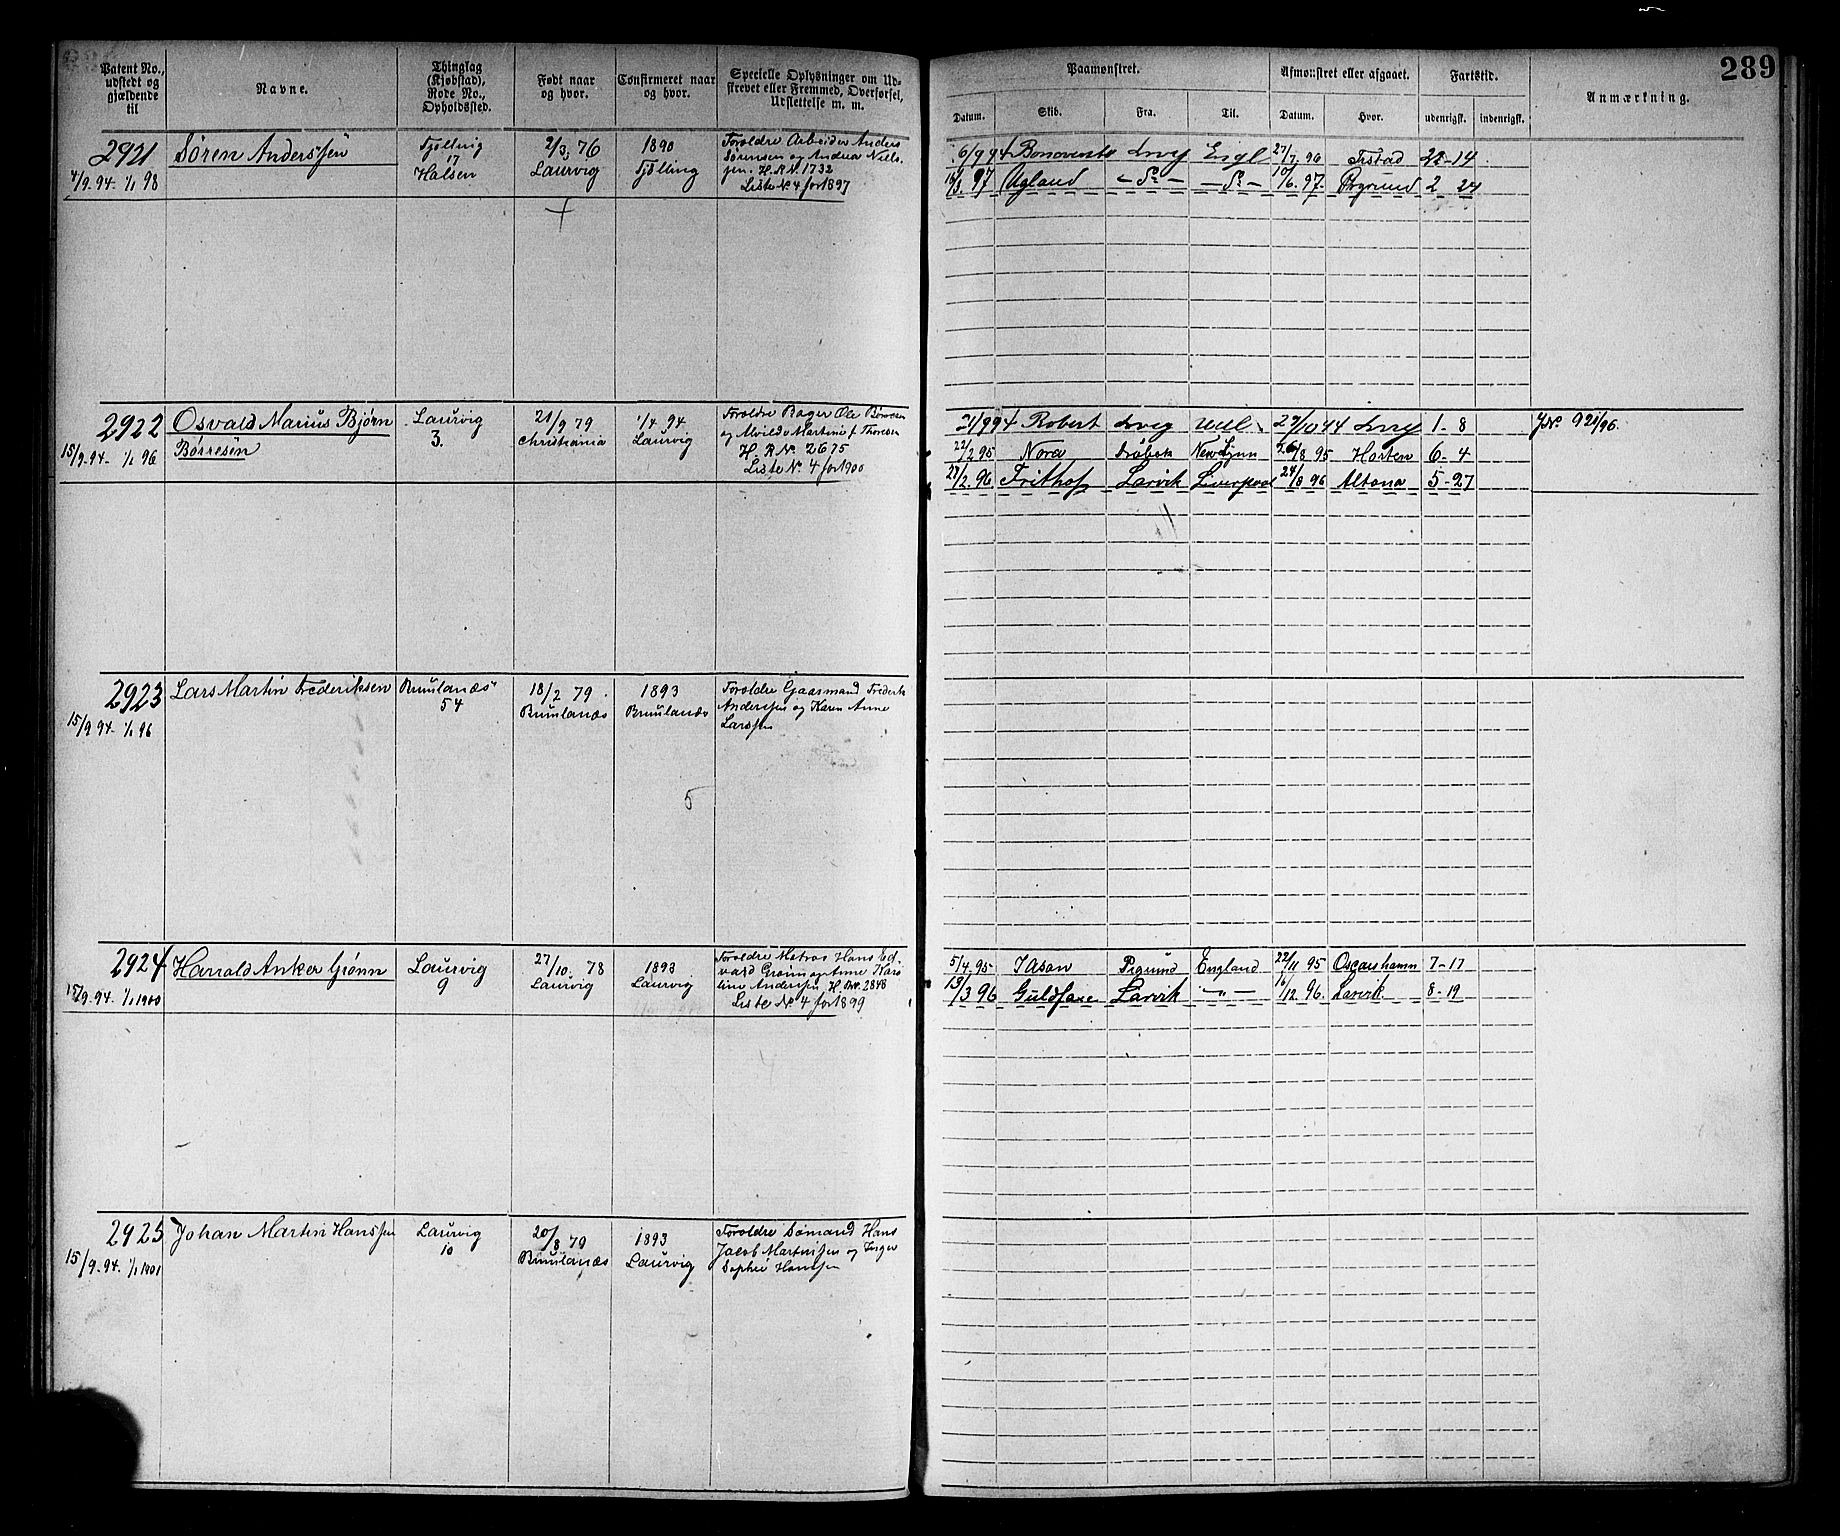 289
Patent No., udstedt og gjældende til
Navne.
Thinglag (Kjøbstad), Rode No., Opholdssted.
Født naar og hvor.
Confirmeret naar og hvor.
Specielle Oplysninger om Udstrevet eller Fremmed, Overførsel, Udslettelse m. m.
Paamønstret.
Afmønstret eller afgaaet.
Fartstid.
Anmærkning.
Datum. Skib. Fra. Til. Datum. Hvor. udenrigsk. indenrigsk.
2921
4/9 94 - 1/1 98
Søren Anderssen
Tjølling
17
Halsen
2/3 76
Laurvig
1890
Tjølling
Forældre Arbeider Anders
Sørensen og Andrea Niels-
sen. H.R.N. 1732
Liste N. 4 for 1897
6/9 94 Bonaventa Lvg Engl 27/7 96 22-14
97 Ugland - Do - - Do - 10/6 97 Porsgrund 2 24
2922
15/9 94 - 1/1 96
Osvald Marius Bjørn
Børresen
Laurvig
3.
21/9 79
Christiania
1/4 94
Laurvig
Forældre Bager Ole Børresen
og Alvilde Martine f. Thoresen
H. R No. 2675
Liste No. 4 for 1900
21/9 94 Robert Lvg 29/10 94 Lvg 1-8
JNo. 921/96.
22/2 95 Nora Drøbak 95 Horten 6-4
27/2 96 Frithof Larvik Liverpool 24/8 96 Altona 5-27
2923
15/9 94 - 1/1 96
Lars Martin Frederiksen
Brunlanæs
54
18/2 79
Brunlanæs
1893
Brunlanæs
Forældre Gaarmand Frederik
Anderssen og Karen Anne
Larssen
5
2924
15/9 94 - 1/1 1900
Harrald Anker Grønn
Laurvig
9
27/10 78
Laurvig
1893
Laurvig
Forældre Matros Hans Ed-
vard Grønn og Anne Karo
line Anderssen H. RN. 2848
Liste No. 4 for 1899
5/4 95 Jason England 22/11 95 Oscarshamn 7-17
13/3 96 Guldfaxe Larvik - " - 16/12 96. Larvik 8-19
2925
15/9 94 - 1/1 1901
Johan Martin Hanssen
Laurvig
10
20/8 79
Brunlanæs
1893
Laurvig
Forældre Sømand Hans
Jacob Martinssen og Inger
Sophie Hanssen